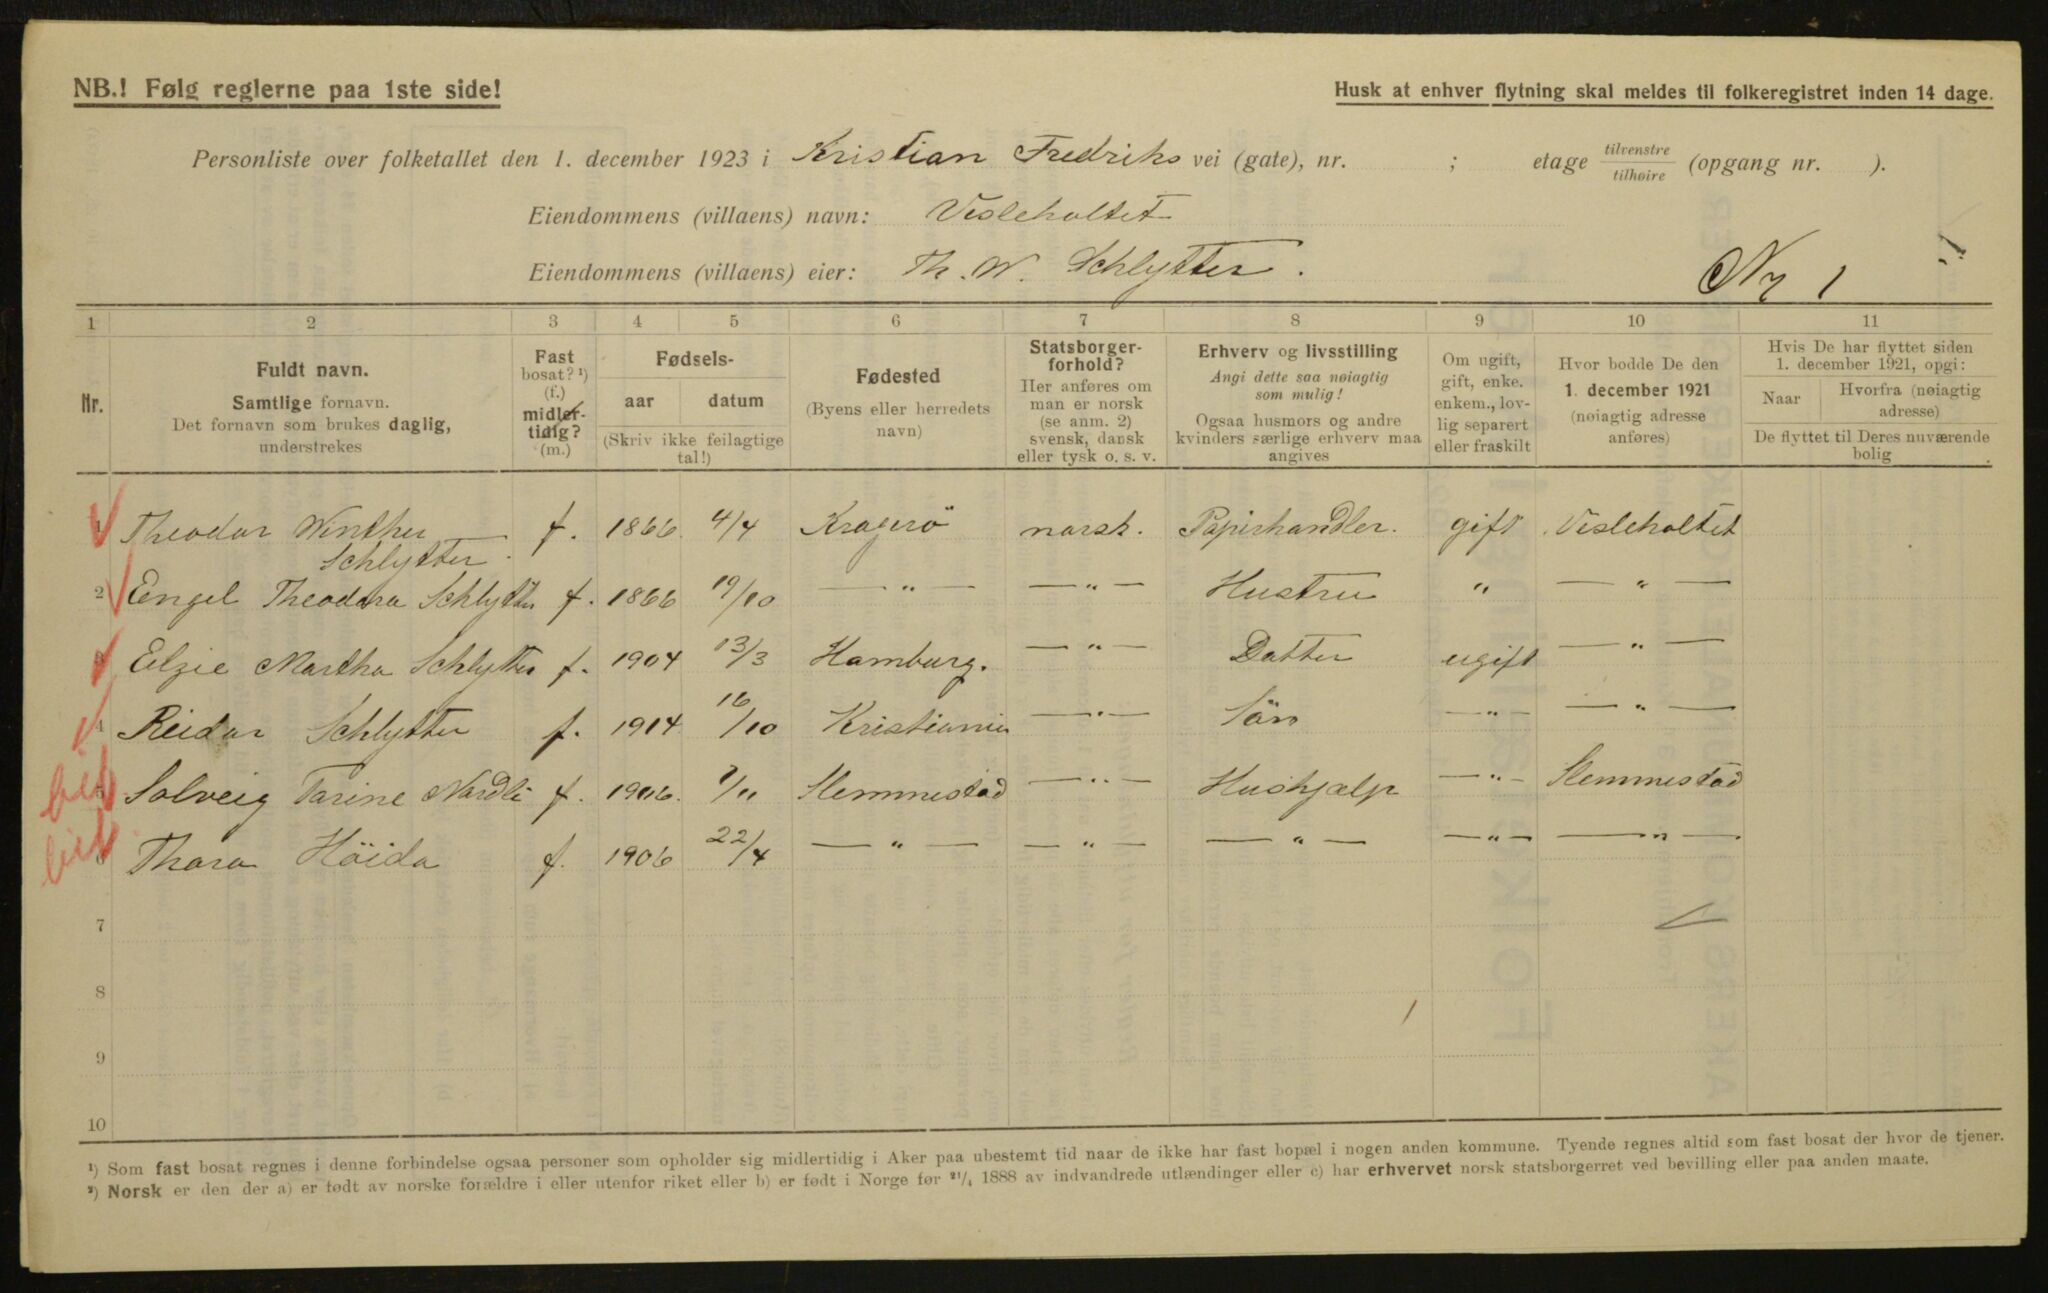 NB.! Følg reglerne paa 1ste side!
Husk at enhver flytning skal meldes til folkeregistret inden 14 dage.
Personliste over folketallet den 1. december 1923 i Kristian Fredriks vei (gate), nr. ; etage tilvenstre/tilhøire (opgang nr. ).
Eiendommens (villaens) navn: Vesleholtet
Eiendommens (villaens) eier: Th. W. Schlytter.
Ny 1
1 2 3 4 5 6 7 8 9 10 11
Nr.
Fuldt navn.
Samtlige fornavn.
Det fornavn som brukes daglig,
understrekes
Fast
bosat? ¹)
(f.)
midler-
tidig?
(m.)
Fødsels-
aar datum
(Skriv ikke feilagtige
tal!)
Fødested
(Byens eller herredets
navn)
Statsborger-
forhold?
Her anføres om
man er norsk
(se anm. 2)
svensk, dansk
eller tysk o. s. v.
Erhverv og livsstilling
Angi dette saa nøiagtig
som mulig!
Ogsaa husmors og andre
kvinders særlige erhverv maa
angives
Om ugift,
gift, enke.
enkem., lov-
lig separert
eller fraskilt
Hvor bodde De den
1. december 1921
(nøiagtig adresse
anføres)
Hvis De har flyttet siden
1. december 1921, opgi:
Naar
Hvorfra (nøiagtig
adresse)
De flyttet til Deres nuværende
bolig
1 Theodor Winther Schlytter. f. 1866. 4/4 Kragerö norsk. Papirhandler. gift Vesleholtet
2 Engel Theodora Schlytter f. 1866 19/10 — „ — — „ — Hustru „ — „ —
3 Elzie Martha Schlytter f. 1904 13/3 Hamburg. — „ — Datter ugift — „ —
4 Reidar Schlytter f. 1914 16/10 Kristiania — „ — Sön — „ — — „ —
5 Solveig Tarine Nordli f. 1906. 7/11 Slemmestad — „ — Hushjælp — „ — Slemmestad
6 Thora Höida f. 1906 22/4 — „ — — „ — — „ — — „ — — „ —
7
8
9
10
¹) Som fast bosat regnes i denne forbindelse ogsaa personer som opholder sig midlertidig i Aker paa ubestemt tid naar de ikke har fast bopæl i nogen anden kommune. Tyende regnes altid som fast bosat der hvor de tjener.
²) Norsk er den der a) er født av norske forældre i eller utenfor riket eller b) er født i Norge før ²¹/₄ 1888 av indvandrede utlændinger eller c) har erhvervet norsk statsborgerret ved bevilling eller paa anden maate.